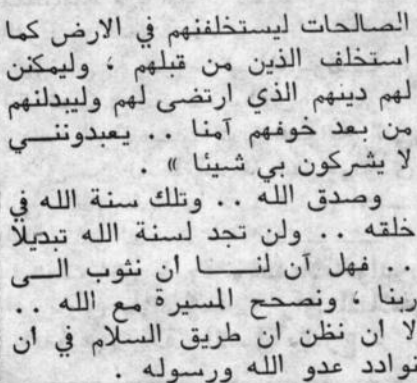 الصالحات ليستخلفنهم في الارض كما
استخلف الذين من قبلهم ، وليمكنن
لهم دينهم الذي ارتضى لهم وليبدلنهم
من بعد خوفهم آمنا . . يعبدونني
لا يشركون بي شيئا » .
وصدق الله . . وتلك سنة الله في
خلقه . . ولن تجد لسنة الله تبديلا
. . فهل آن لنا ان نثوب الى
ربنا ، ونصحح المسيرة مع الله . .
لا ان نظن ان طريق السلام في ان
نوادد عدو الله ورسوله .